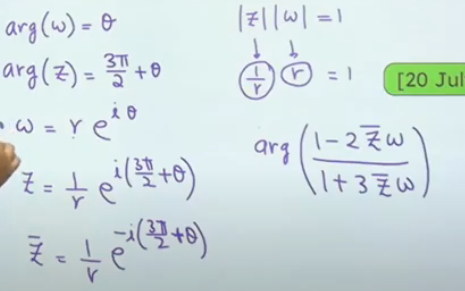 arg(ω) = θ
arg(z) = 3π/2 + θ
ω = r e^{iθ}
z = 1/r e^{i(3π/2 + θ)}
z̄ = 1/r e^{-i(3π/2 + θ)}
|z||ω| = 1
↓ ↓
1/r r = 1
[20 Jul
arg((1 - 2z̄ω)/(1 + 3z̄ω))